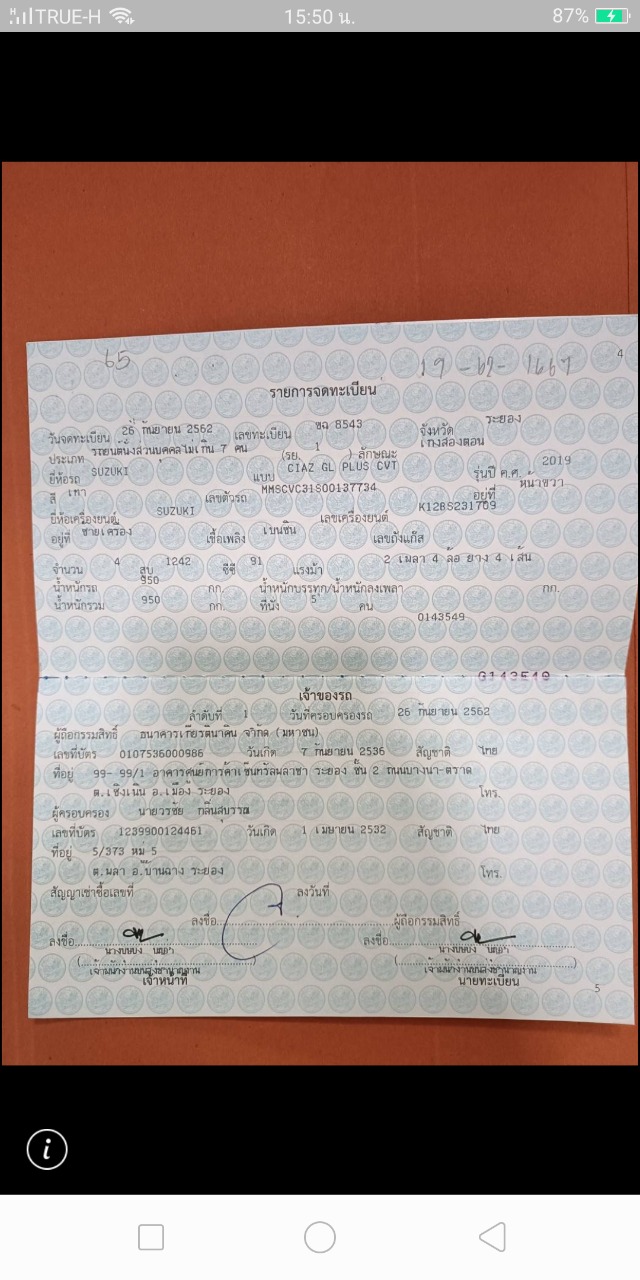 TRUE-H 15:50 น. 87%
65
4
รายการจดทะเบียน
วันจดทะเบียน 26 กันยายน 2562 เลขทะเบียน 8543 จังหวัด ระยอง
ประเภท รถยนต์นั่งส่วนบุคคลไม่เกิน 7 คน (รย. 1 ) ลักษณะ เก๋งสองตอน
ยี่ห้อรถ SUZUKI แบบ CIAZ GL PLUS CVT รุ่นปี ค.ศ. 2019
สี เทา เลขตัวรถ MMSCVC31S00137734 อยู่ที่ หน้าขวา
ยี่ห้อเครื่องยนต์ SUZUKI เลขเครื่องยนต์ K12BS231709
อยู่ที่ ซ้ายเครื่อง เชื้อเพลิง เบนซิน เลขถังแก๊ส
จำนวน 4 สูบ 1242 ซีซี 91 แรงม้า 2 เพลา 4 ล้อ ยาง 4 เส้น
น้ำหนักรถ 950 กก. น้ำหนักบรรทุก/น้ำหนักลงเพลา กก.
น้ำหนักรวม 950 กก. ที่นั่ง 5 คน
0143549
0143549
เจ้าของรถ
ลำดับที่ 1 วันที่ครอบครองรถ 26 กันยายน 2562
ผู้ถือกรรมสิทธิ์ ธนาคารเกียรตินาคิน จำกัด (มหาชน)
เลขที่บัตร 0107536000986 วันเกิด 7 กันยายน 2536 สัญชาติ ไทย
ที่อยู่ 99- 99/1 อาคารศูนย์การค้าเซ็นทรัลพลาซา ระยอง ชั้น 2 ถนนบางนา-ตราด
ต.เชิงเนิน อ.เมือง ระยอง โทร.
ผู้ครอบครอง นายวรชัย กลิ่นสุบรรณ
เลขที่บัตร 1239900124461 วันเกิด 1 เมษายน 2532 สัญชาติ ไทย
ที่อยู่ 5/373 หมู่ 5
ต.พลา อ.บ้านฉาง ระยอง โทร.
สัญญาเช่าซื้อเลขที่ ลงวันที่
ลงชื่อ ผู้ถือกรรมสิทธิ์
ลงชื่อ ลงชื่อ
เจ้าหน้าที่ นายทะเบียน
5